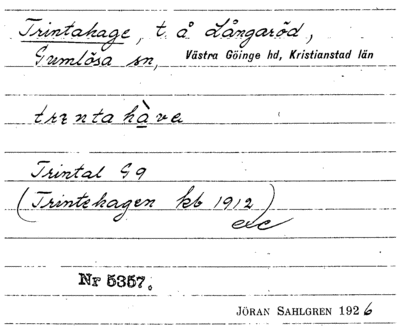 Trintahage, t. å Långaröd,
Gumlösa sn, Västra Göinge hd, Kristianstad län
trɪntahàva
Trintal G9
(Trintehagen kb 1912)
exc
Nr 5357.
JÖRAN SAHLGREN 1926